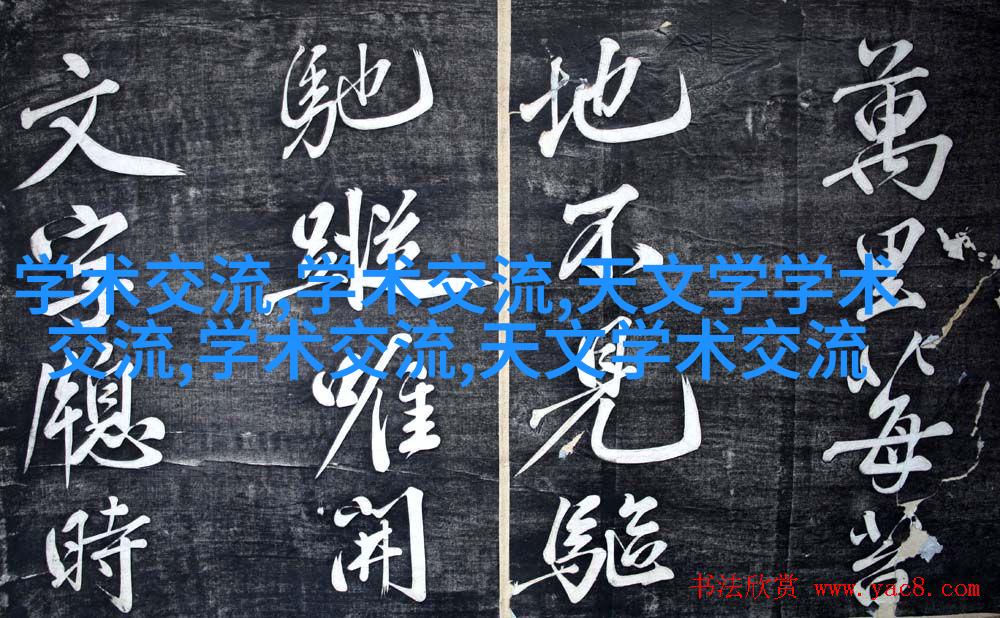 萬里每
地不見驅
馳蹤唯開
文字時
学术交流,学术交流,天文学学术
交流,学术交流,天文学术交流
书法欣赏 www.yac8.com